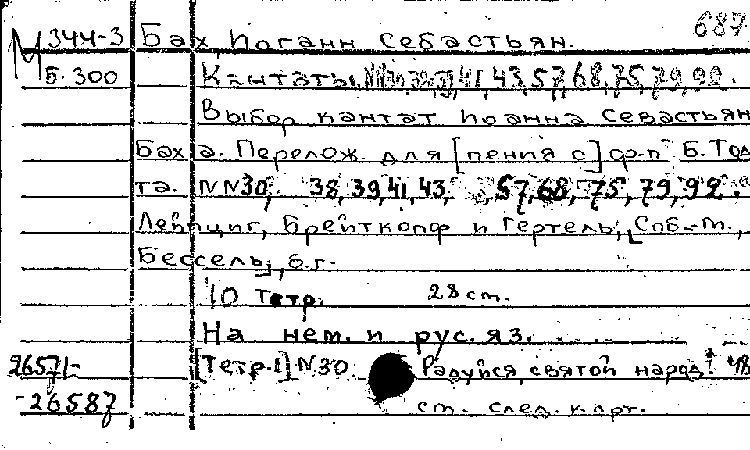 687
М 344-3 Бах, Иоганн Себастьян.
Б-300 Кантаты 41, 43, 57, 68, 75, 79, 92.
Выбор кантат Иоанна Севастьян
Баха. Перелож. для [пения с] ф-п Б. Тод
та. NN30, 38, 39, 41, 43, 57, 68, 75, 79, 92.
Лейпциг, Брейткопф и Гертель; [Спб.-М.,
Бессель], б.г.
10 тетр. 28 ст.
На нем. и рус. яз.
26571- [Тетр.1] N30. Радуйся, святой народ!
-26587 ст. след. карт.